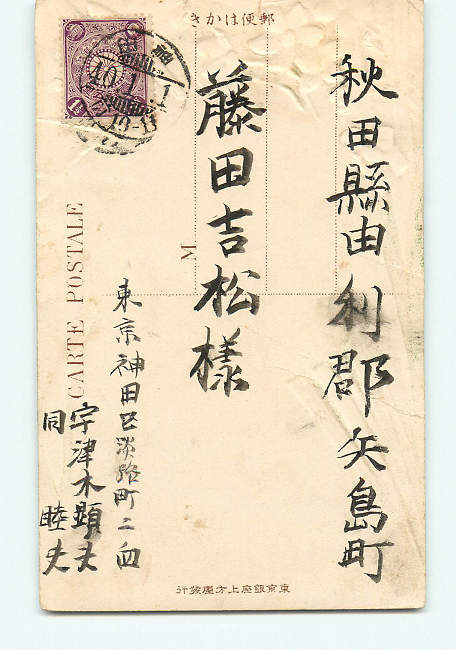 郵便はかき
秋田縣由利郡矢島町
藤田吉松様
東京神田区淡路町二ノ四
宇津木顕夫
同 睦夫
CARTE POSTALE
M
40.1.1
東京銀座上方屋發行